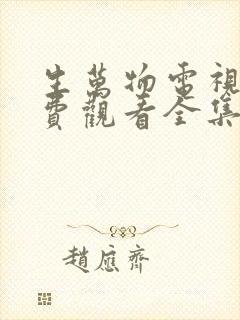 生萬物電視
費觀看全集
趙應齊